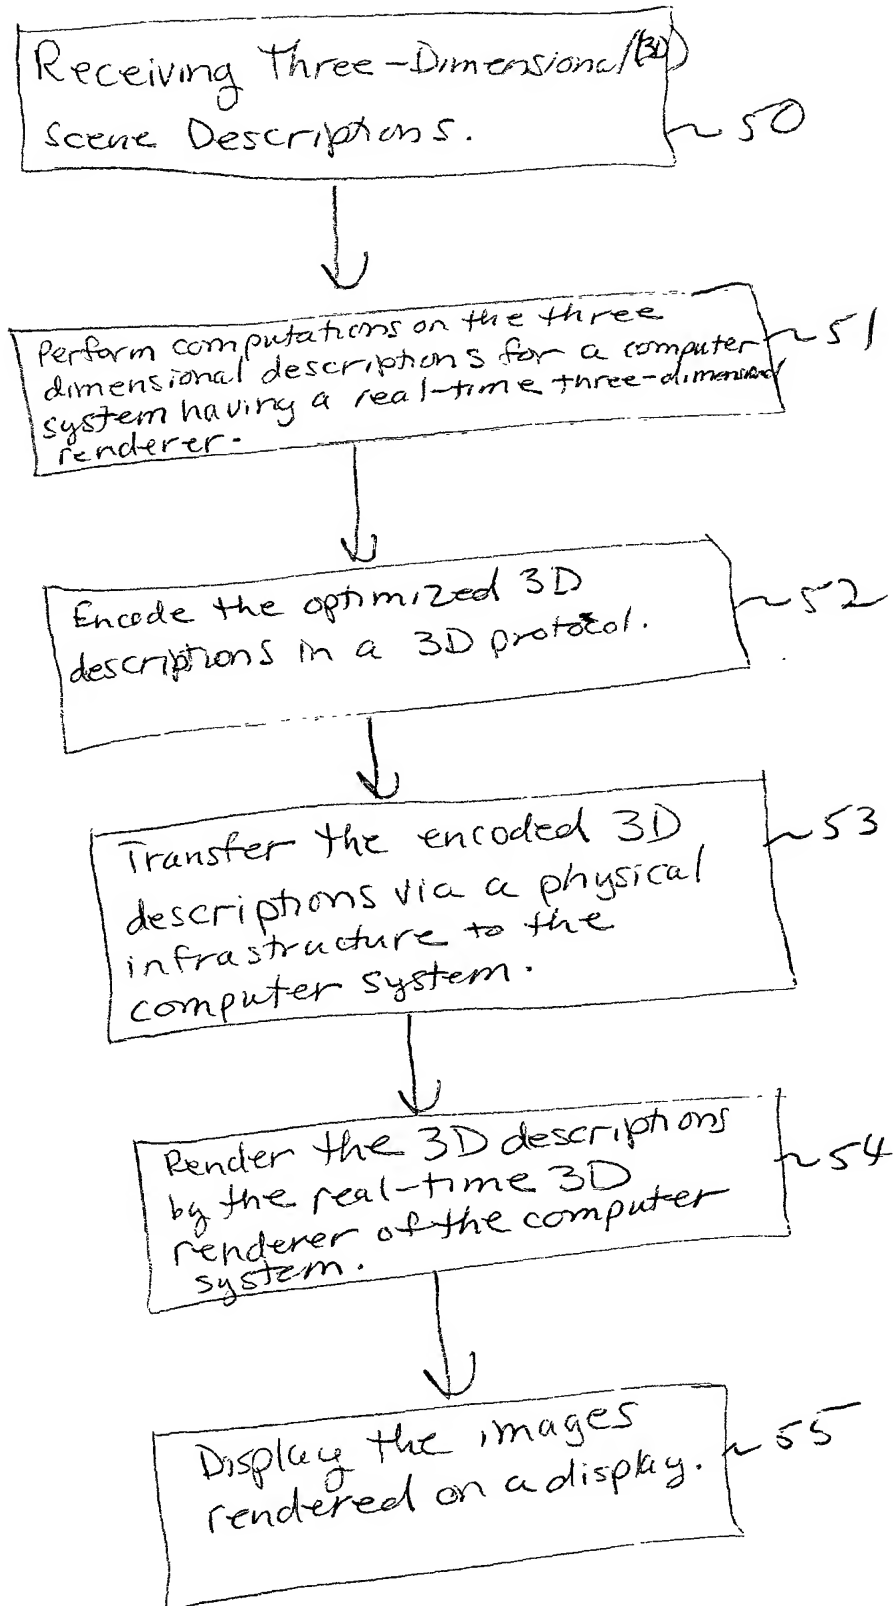 Receiving Three-Dimensional (3D)
Scene Descriptions.
~ 50
Perform computations on the three
dimensional descriptions for a computer
system having a real-time three-dimensional
renderer.
~ 51
Encode the optimized 3D
descriptions in a 3D protocol.
~ 52
Transfer the encoded 3D
descriptions via a physical
infrastructure to the
computer system.
~ 53
Render the 3D descriptions
by the real-time 3D
renderer of the computer
system.
~ 54
Display the images
rendered on a display.
~ 55